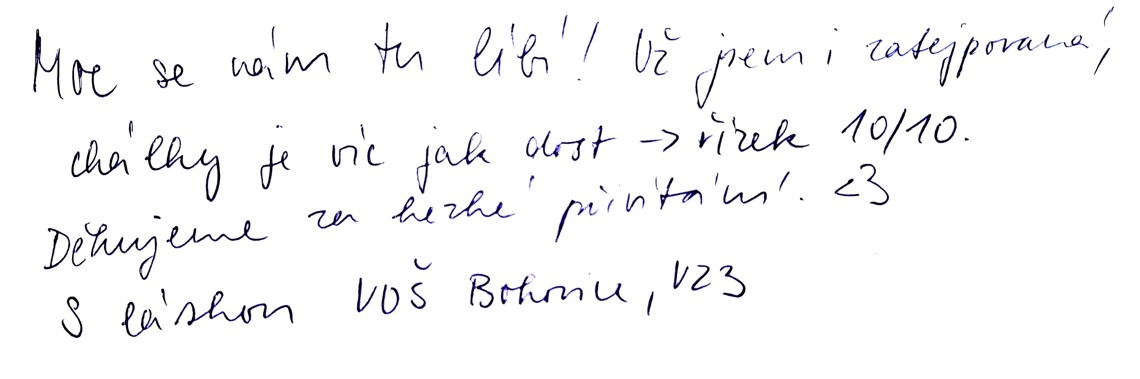 Moc se nám tu líbí! Už jsem i zatejpovaná,
chálky je víc jak dost -> řízek 10/10.
Děkujeme za hezké přivítání. <3
S láskou VOŠ Bohovice, VZ3